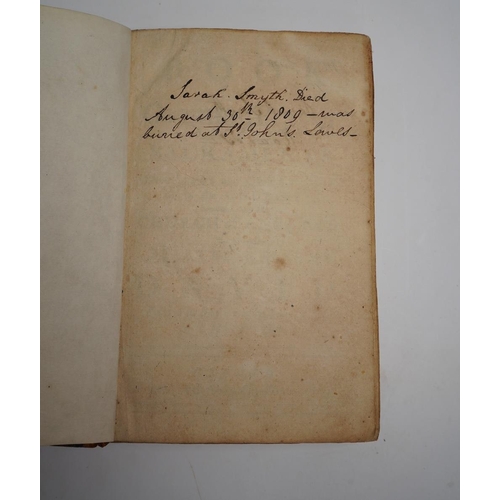 Sarah. Smyth. Died
August 30th 1809 - was
buried at St. John's, Lewes -